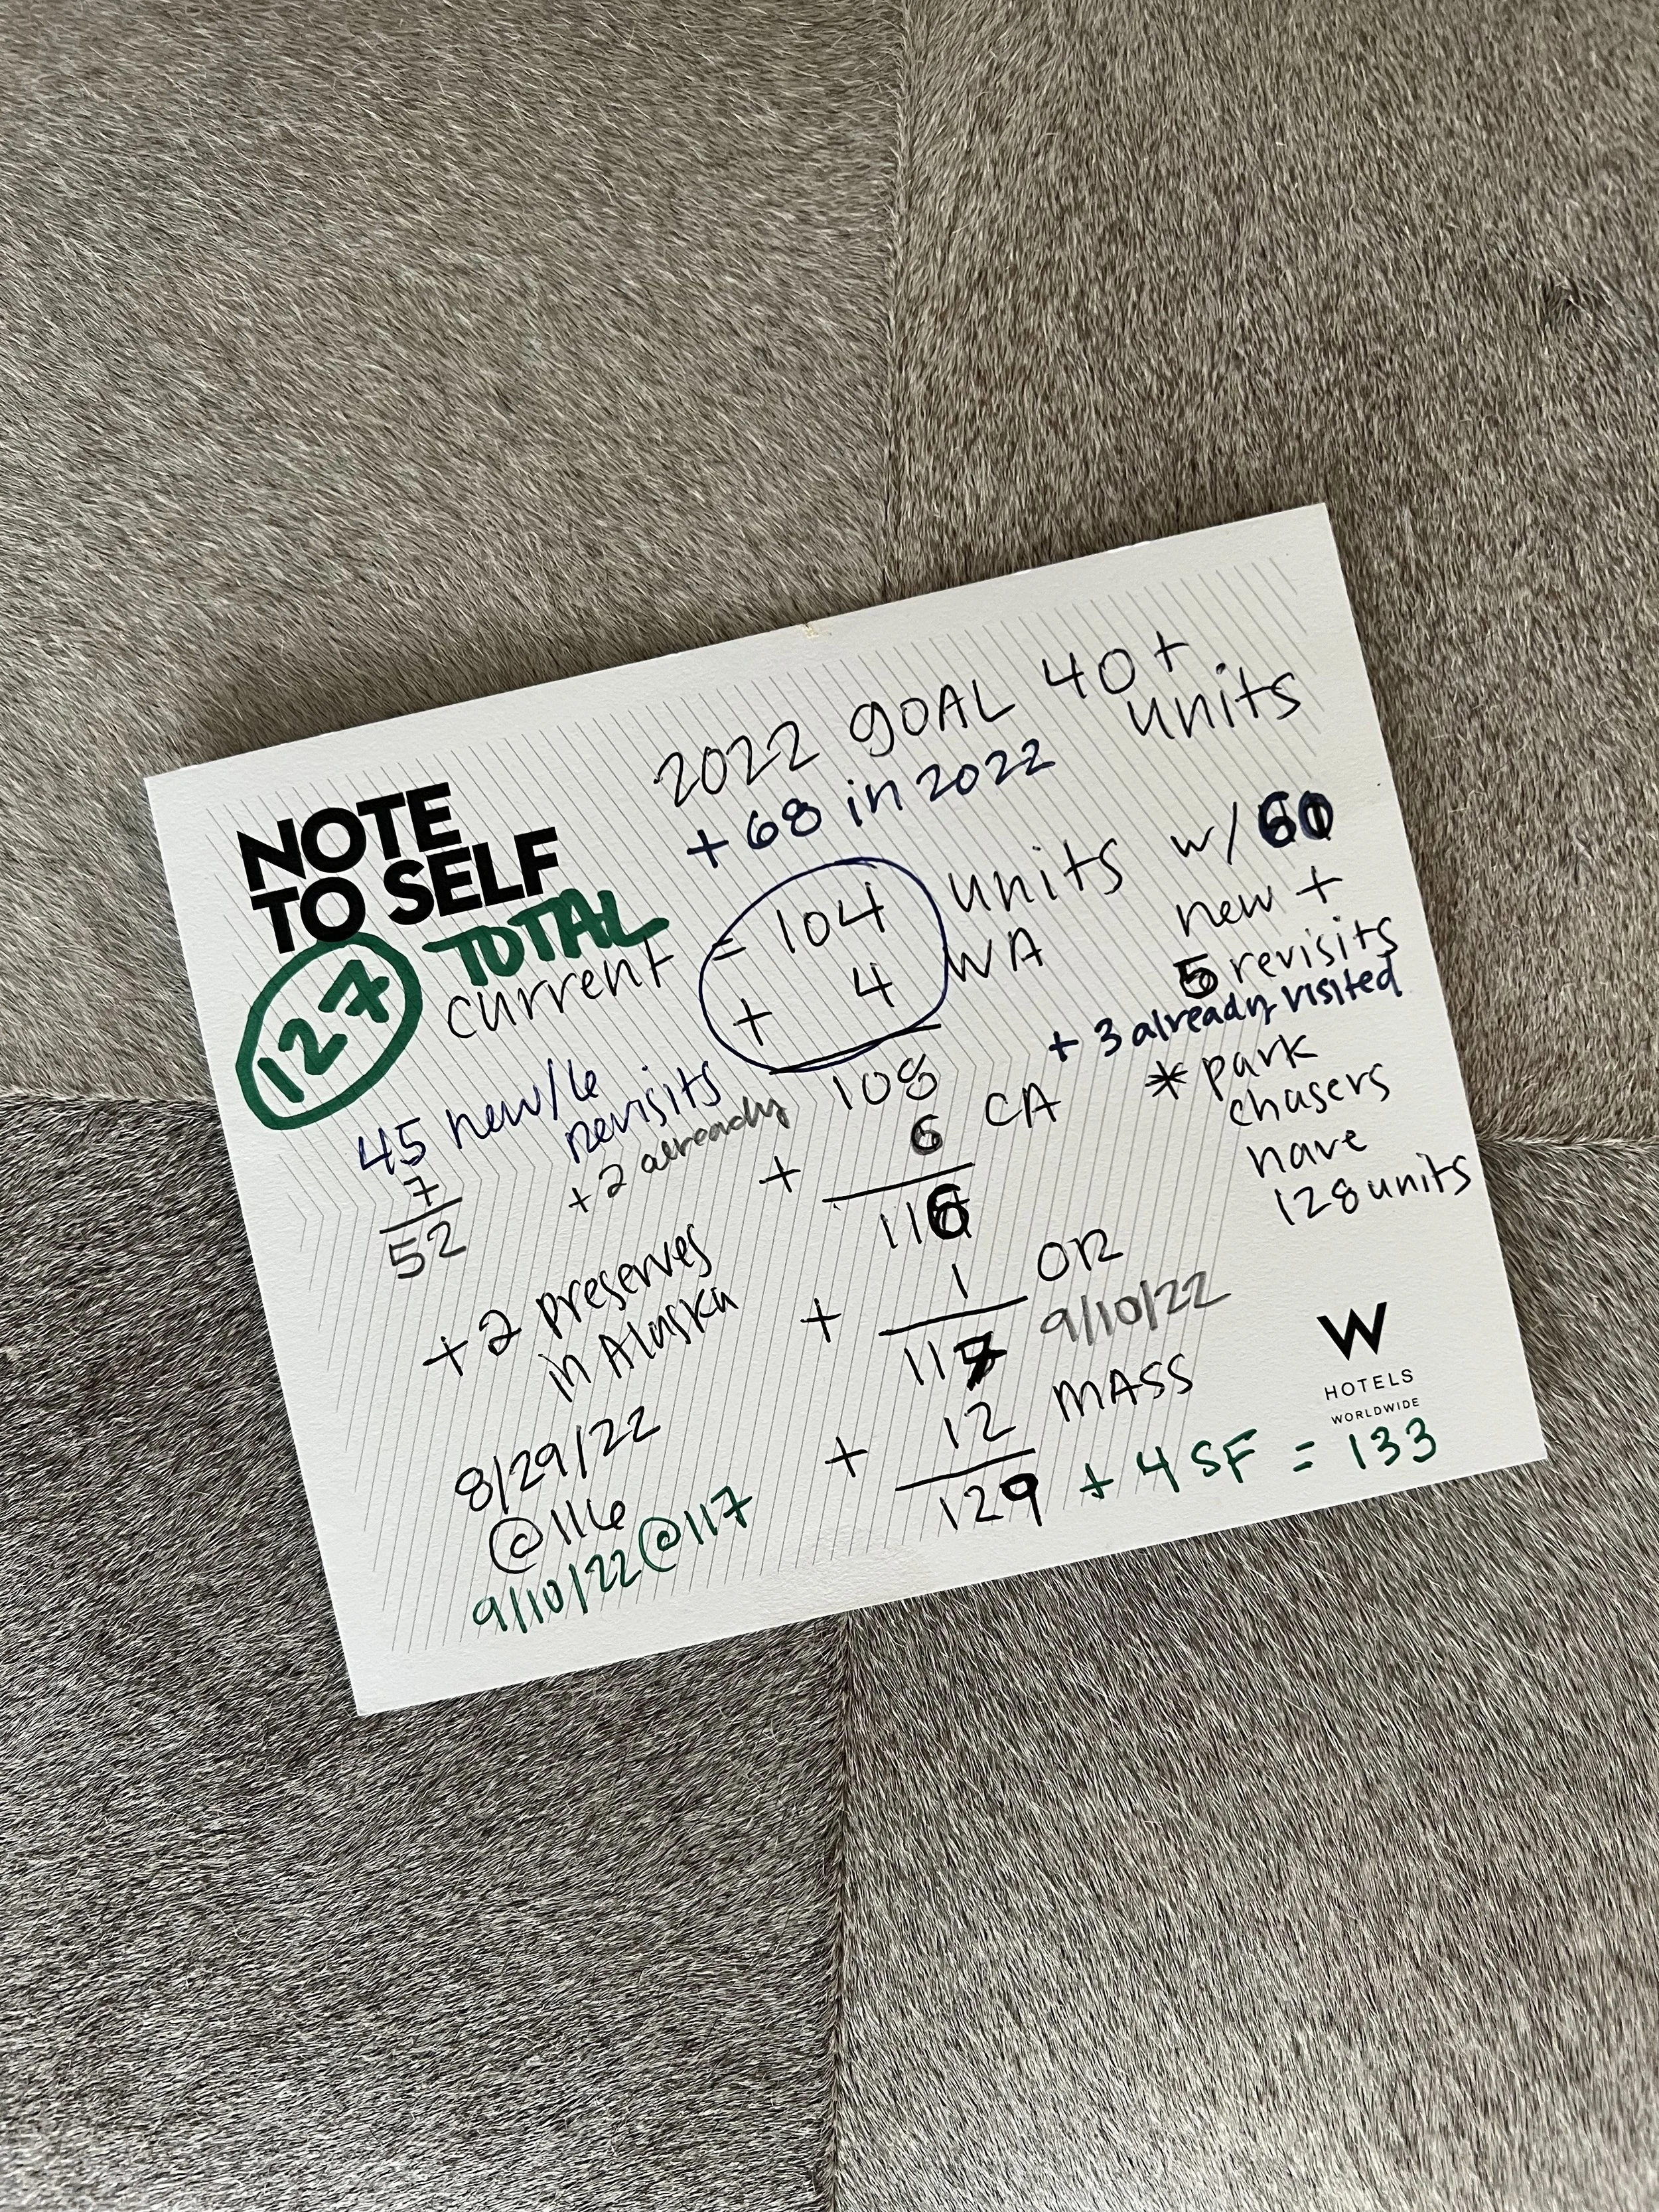 2022 GOAL 40+
units
+68 in 2022
NOTE
TO SELF
127 TOTAL
current = 104 units w/
new +
+ 4 WA
5 revisits
+ 3 already visited
108
45 new/6
revisits
+2 already
7
52
+ 6 CA
116
* park
chasers
have
128 units
+2 preserves
in Alaska
+ 1 OR
117 9/10/22
+ 12 MASS
129 + 4 SF = 133
8/29/22
@116
9/10/22@117
W
HOTELS
WORLDWIDE